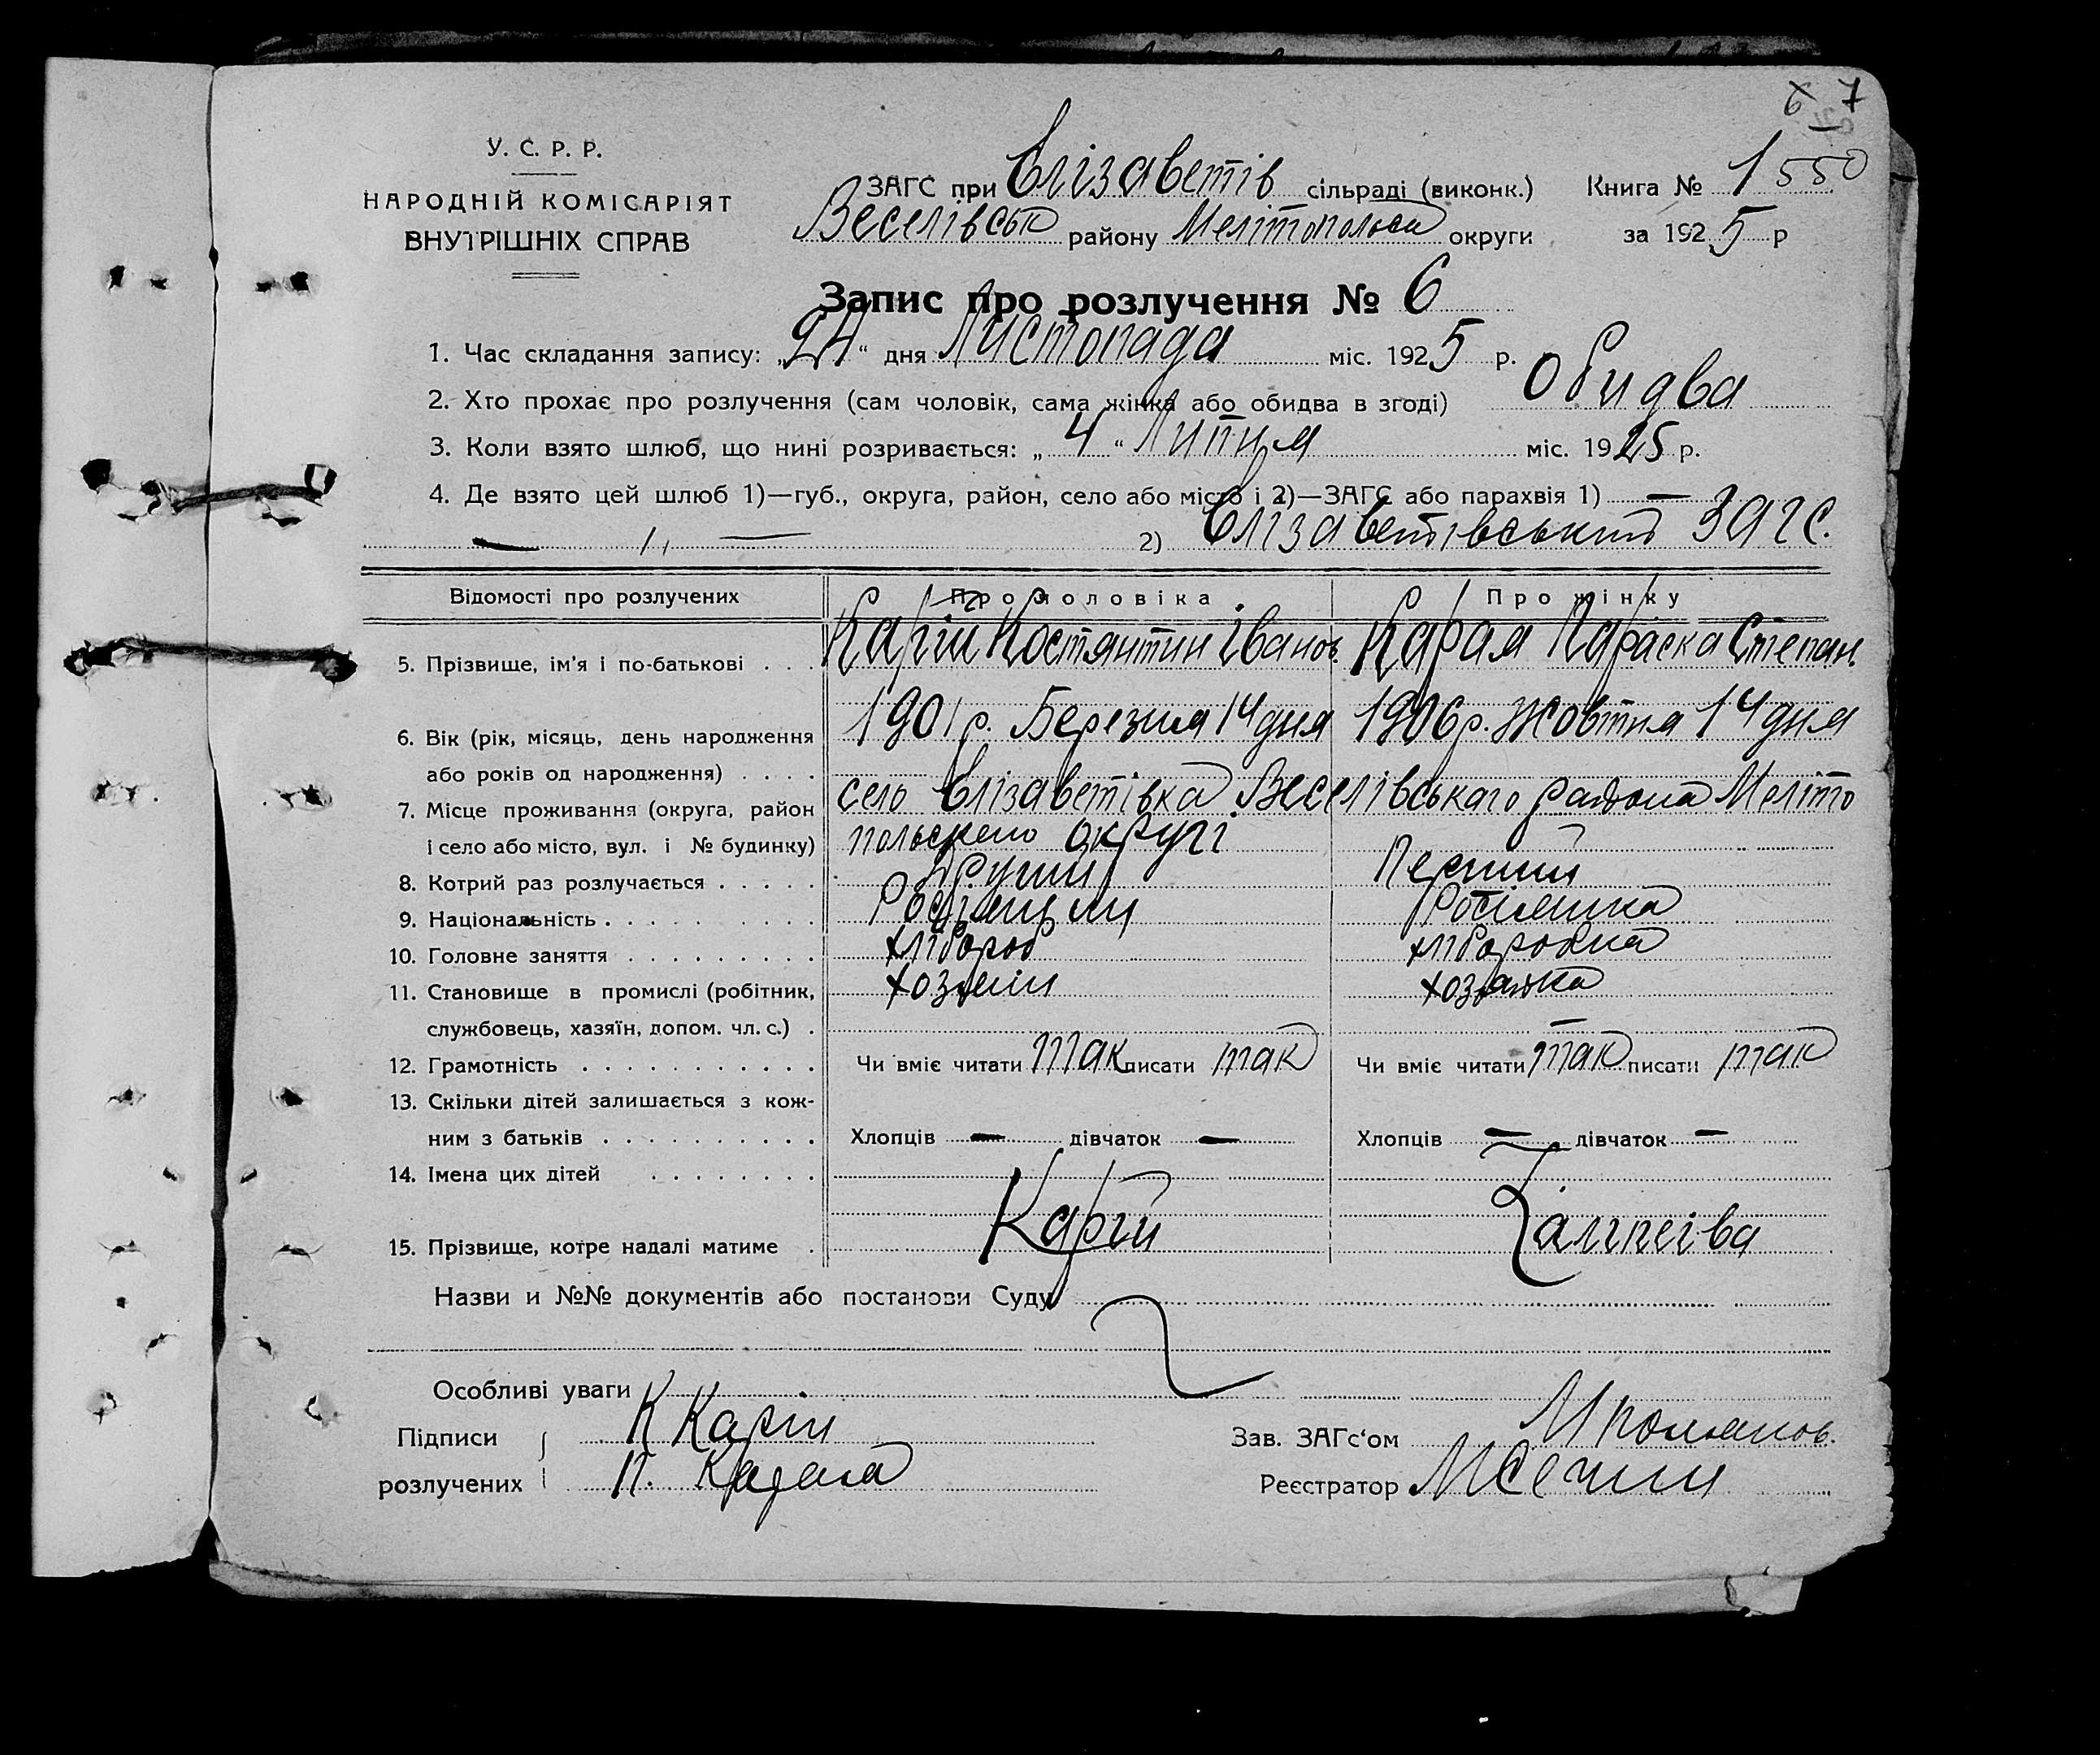 7
У. С. Р. Р.
НАРОДНІЙ КОМІСАРІЯТ
ВНУТРІШНІХ СПРАВ
ЗАГС при Єлізаветів сільраді (виконк.) Книга № 1 550
Веселівськ району Мелітопольск округи за 1925 р
Запис про розлучення № 6
1. Час складання запису: „24“ дня Листопада міс. 1925 р.
2. Хто прохає про розлучення (сам чоловік, сама жінка або обидва в згоді) Обидва
3. Коли взято шлюб, що нині розривається: „4“ Липня міс. 1925 р.
4. Де взято цей шлюб 1)—губ., округа, район, село або місто і 2)—ЗАГС або парахвія 1) —
— 〃 — 2) Єлізаветівський ЗАГС.
Відомості про розлучених Про чоловіка Про жінку
5. Прізвище, ім'я і по-батькові . . . Карій Костянтин Іванов. Карая Параска Степан.
6. Вік (рік, місяць, день народження 1901 р. Березня 14 дня 1906 р. Жовтня 14 дня
або років од народження) . . . .
7. Місце проживання (округа, район село Єлізаветівка Веселівського района Меліто
і село або місто, вул. і № будинку) округі
8. Котрий раз розлучається . . . . . Другий Перший
9. Національність . . . . . . . . .
10. Головне заняття . . . . . . . . . хлібороб хліборобка
11. Становище в промислі (робітник, хозяїн хозяйка
службовець, хазяїн, допом. чл. с.) . —
12. Грамотність . . . . . . . . . . . Чи вміє читати так писати так Чи вміє читати так писати так
13. Скільки дітей залишається з кож-
ним з батьків . . . . . . . . . . Хлопців — дівчаток — Хлопців — дівчаток —
14. Імена цих дітей . . . . . . . .
15. Прізвище, котре надалі матиме . Карій
Назви и №№ документів або постанови Суду
Особливі уваги
Підписи К Карій Зав. ЗАГс'ом
розлучених П. Карая Реєстратор